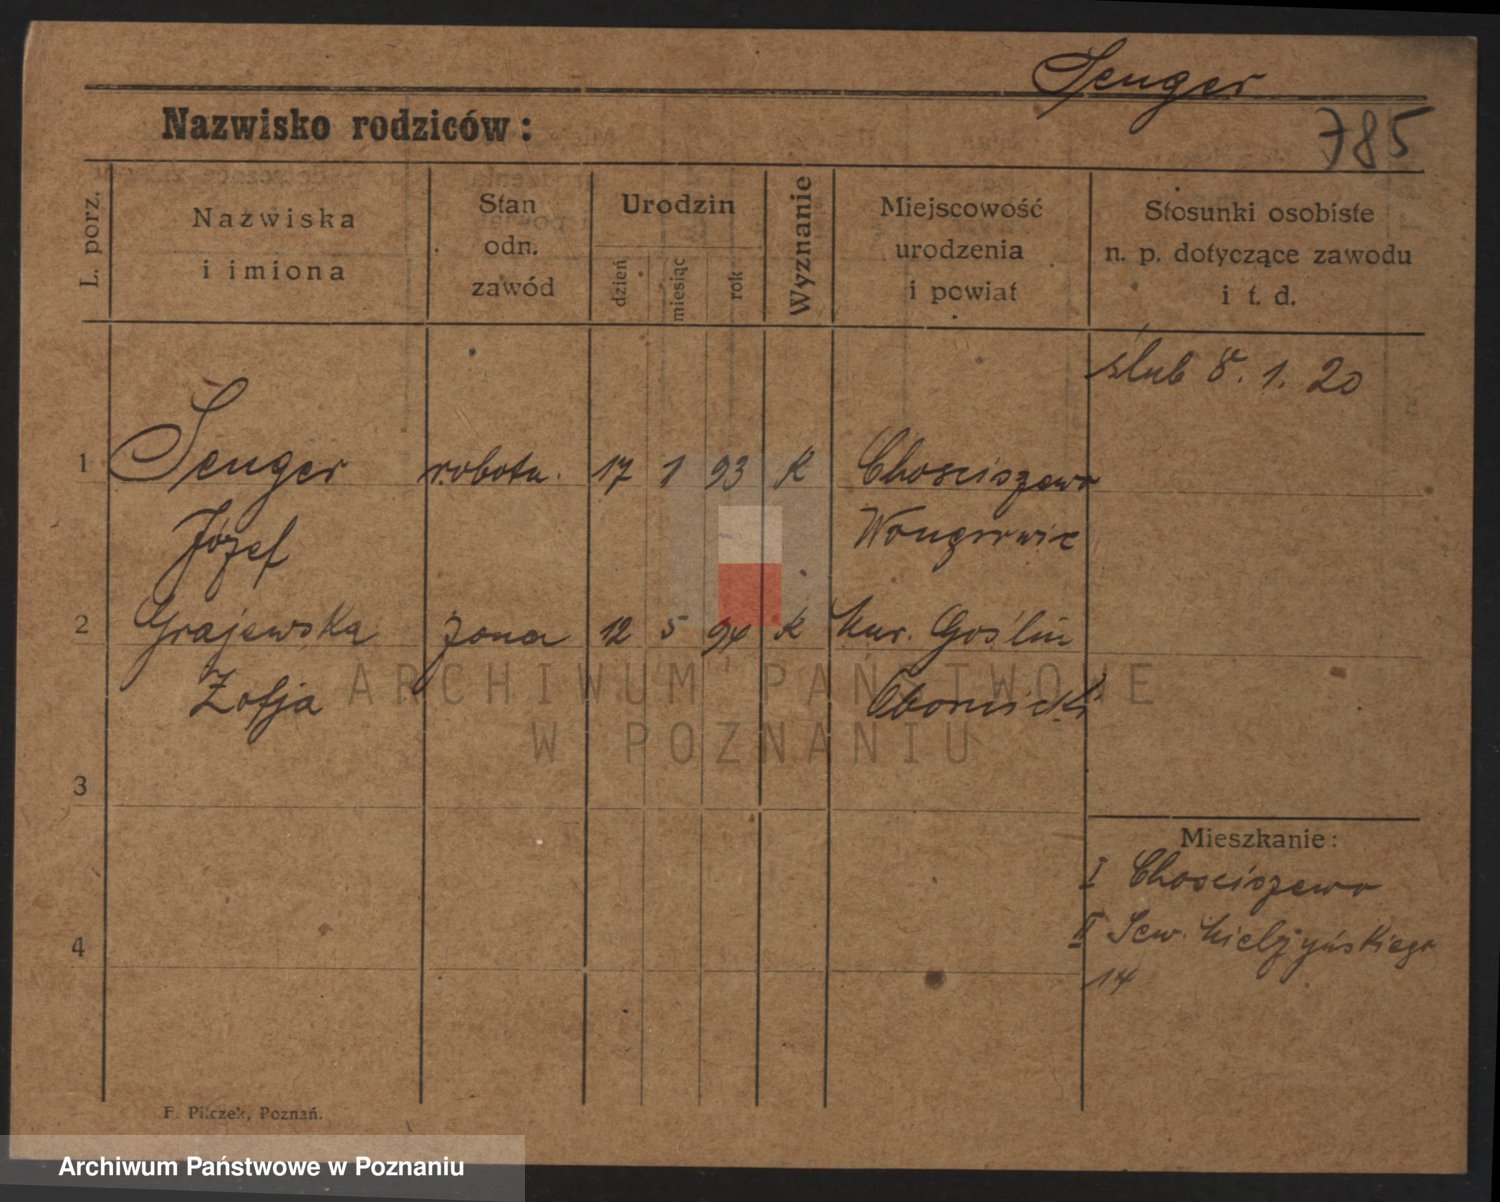 Senger
785
Nazwisko rodziców:
L. porz.
Nazwiska
i imiona
Stan
odn.
zawód
Urodzin
dzień
miesiąc
rok
Wyznanie
Miejscowość
urodzenia
i powiat
Stosunki osobiste
n. p. dotyczące zawodu
i t. d.
ślub 8. 1. 20
1 Senger robotn. 17 1 93 K Chosciszewo
Józef Wongrowic
2 Grajewska żona 12 5 94 K Mur. Goślin
Zofja Obornicki
3
4
Mieszkanie:
I Chosciszewo
II Sew. Mielżyńskiego
14
F. Pilczek, Poznań.
ARCHIWUM PAŃSTWOWE
W POZNANIU
Archiwum Państwowe w Poznaniu